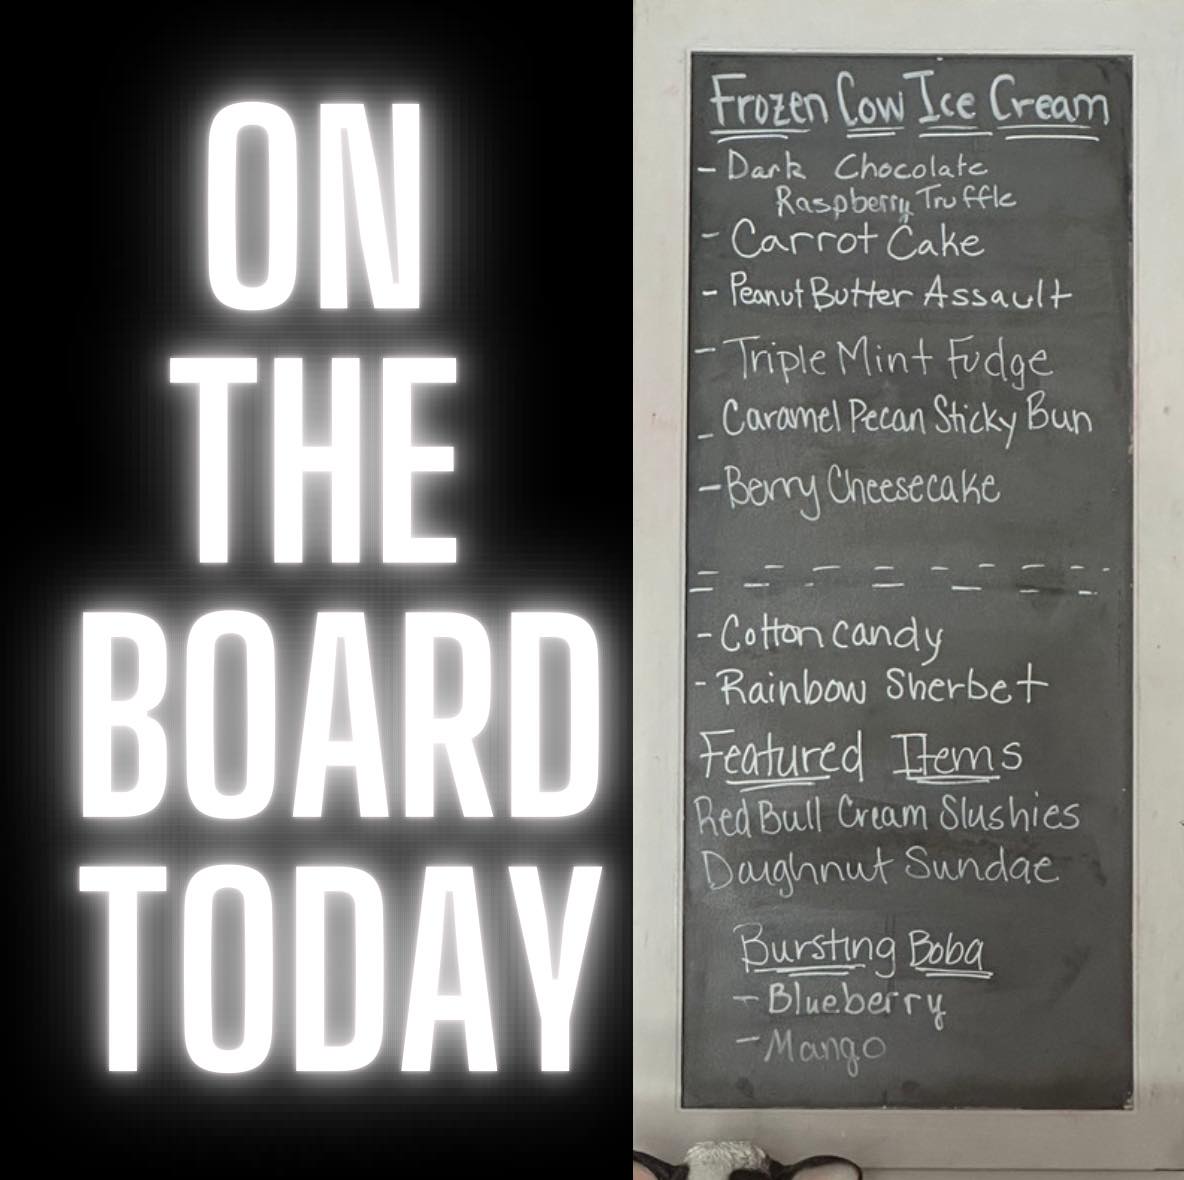 ON
THE
BOARD
TODAY
Frozen Cow Ice Cream
- Dark Chocolate
Raspberry Truffle
- Carrot Cake
- Peanut Butter Assault
- Triple Mint Fudge
- Caramel Pecan Sticky Bun
- Berry Cheesecake
- Cotton candy
- Rainbow Sherbet
Featured Items
Red Bull Cream Slushies
Doughnut Sundae
Bursting Boba
- Blueberry
- Mango